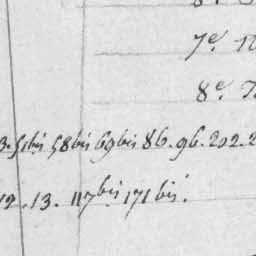 7e.
8e.
3. 51bis 58bis 69bis 86. 96. 202. 2
12. 13. 117bis 171bis.